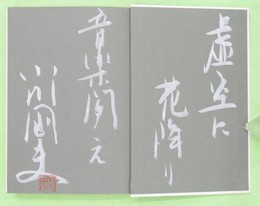 虚空に
花降り
音楽聞え